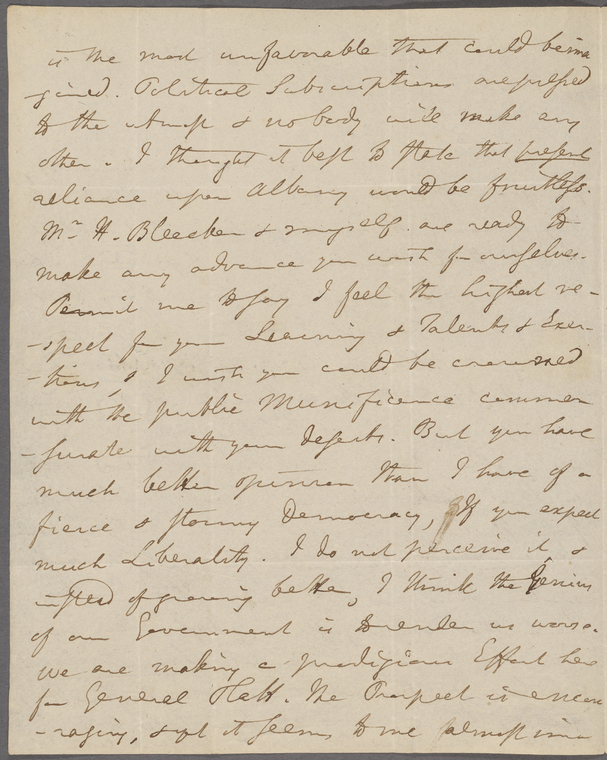 is the most unfavorable that could be ima
-gined. Political Subscriptions are pushed
to the utmost & nobody will make any
other. I thought it best to state that present
reliance upon Albany would be fruitless.
Mr H. Bleecker & myself are ready to
make any advance you wish for ourselves.
Permit me to say I feel the highest re-
-spect for your Learning & Talents & Exer-
-tions, & I wish you could be crowned
with the public Munificence commen
-surate with your deserts. But you have
much better opinion than I have of a
fierce & stormy Democracy, If you expect
much Liberality. I do not perceive it, &
instead of growing better, I think the Genius
of our Government is to render us worse.
we are making a prodigious Effort here
for General Platt. The Prospect is encou
-raging, & yet it seems to me almost im